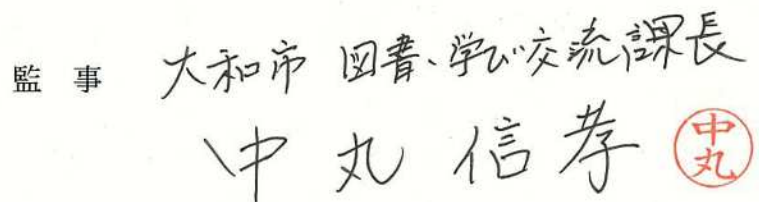 監事 大和市 図書・学び交流課長
中丸 信孝 中丸